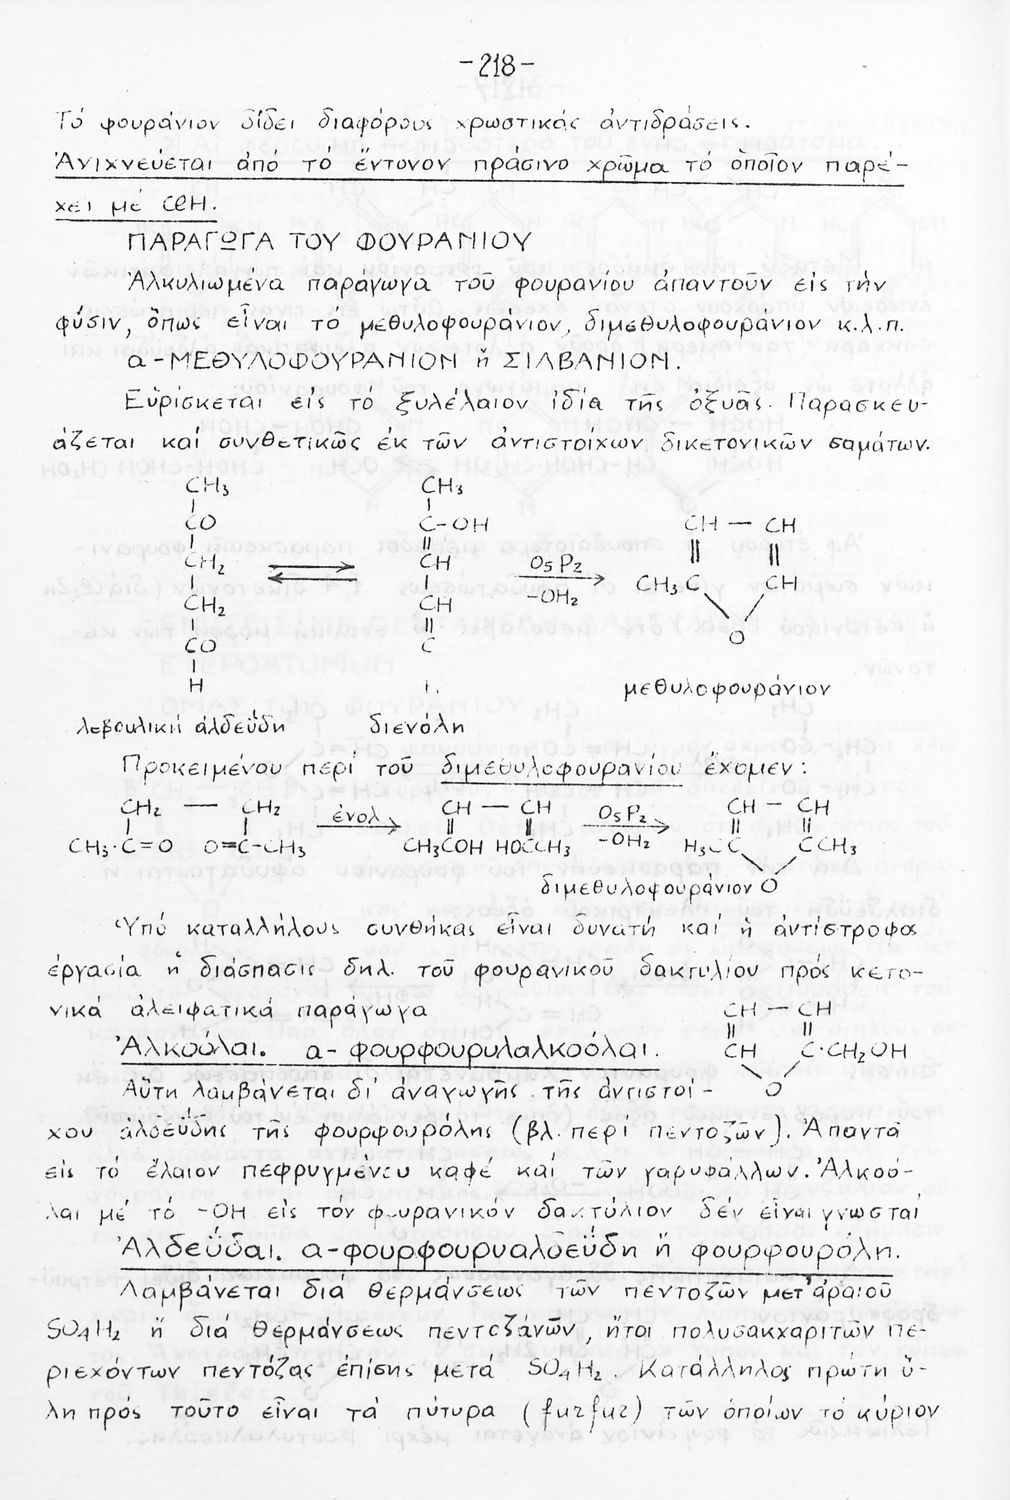 -218-
Τό φουράνιον δίδει διαφόρους χρωστικάς ἀντιδράσεις.
Ἀνιχνεύεται ἀπό τό ἔντονον πράσινο χρῶμα τό ὁποῖον παρέ-
χει μέ CℓH.
ΠΑΡΑΓΩΓΑ ΤΟΥ ΦΟΥΡΑΝΙΟΥ
Ἀλκυλιωμένα παράγωγα τοῦ φουρανίου ἀπαντοῦν εἰς τήν
φύσιν, ὅπως εἶναι τό μεθυλοφουράνιον, διμεθυλοφουράνιον κ.λ.π.
α-ΜΕΘΥΛΟΦΟΥΡΑΝΙΟΝ ἤ ΣΙΛΒΑΝΙΟΝ.
Εὑρίσκεται εἰς τό ξυλέλαιον ἰδία τῆς ὀξυᾶς. Παρασκευ-
άζεται καί συνθετικῶς ἐκ τῶν ἀντιστοίχων δικετονικῶν σωμάτων.
CH3 CH3
CO C-OH CH — CH
CH2 CH O5P2 CH3C CH
CH2 CH -OH2
CO C O
H
μεθυλοφουράνιον
λεβουλική ἀλδεΰδη διενόλη
Προκειμένου περί τοῦ διμεθυλοφουρανίου ἔχομεν:
CH2 — CH2 ἐνολ CH — CH O5P2 CH — CH
CH3·C=O O=C-CH3 CH3COH HOCCH3 -OH2 H3CC CCH3
διμεθυλοφουράνιον O
Ὑπό καταλλήλους συνθήκας εἶναι δυνατή καί ἡ ἀντίστροφος
ἐργασία ἤ διάσπασις δηλ. τοῦ φουρανικοῦ δακτυλίου πρός κετο-
νικά ἀλειφατικά παράγωγα CH — CH
Ἀλκοόλαι. α- φουρφουρυλαλκοόλαι. CH C·CH2OH
Αὕτη λαμβάνεται δι' ἀναγωγῆς τῆς ἀντιστοί- O
χου ἀλδεΰδης τῆς φουρφουρόλης (βλ. περί πεντοζῶν). Ἀπαντᾶ
εἰς τό ἔλαιον πεφρυγμένου καφέ καί τῶν γαρυφάλλων. Ἀλκοό-
λαι μέ τό -OH εἰς τόν φουρανικόν δακτύλιον δέν εἶναι γνωσταί
Ἀλδεΰδαι. α-φουρφουρυαλδεΰδη ἤ φουρφουρόλη.
Λαμβάνεται διά θερμάνσεως τῶν πεντοζῶν μετ'ἀραιοῦ
SO4H2 ἤ διά θερμάνσεως πεντοζανῶν, ἤτοι πολυσακχαριτῶν πε-
ριεχόντων πεντόζας ἐπίσης μετά SO4H2. Κατάλληλος πρώτη ὕ-
λη πρός τοῦτο εἶναι τά πύτυρα (furfur) τῶν ὁποίων τό κύριον